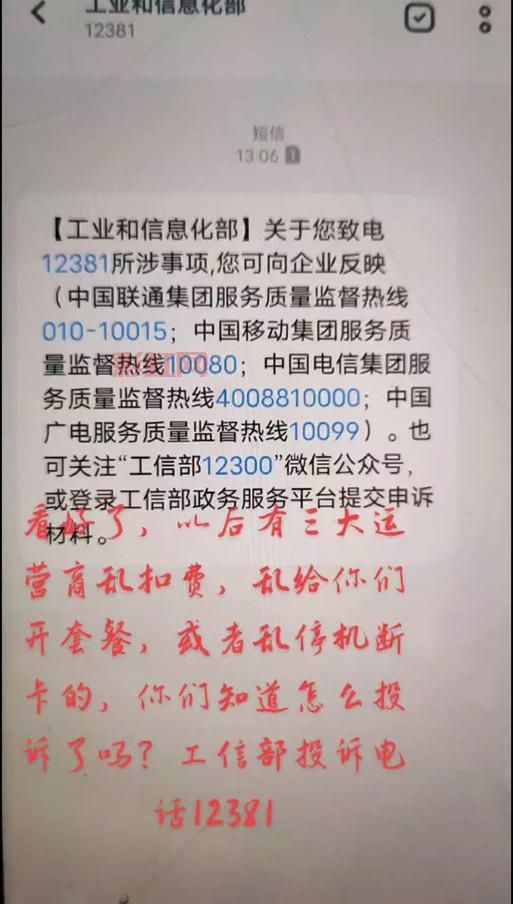 工业和信息化部
12381
短信
13:06
【工业和信息化部】关于您致电
12381所涉事项,您可向企业反映
（中国联通集团服务质量监督热线
010-10015；中国移动集团服务质
量监督热线10080；中国电信集团服
务质量监督热线4008810000；中国
广电服务质量监督热线10099）。也
可关注“工信部12300”微信公众号，
或登录工信部政务服务平台提交申诉
材料。
看好了，以后有三大运
营商乱扣费，乱给你们
开套餐，或者乱停机断
卡的，你们知道怎么投
诉了吗？工信部投诉电
话12381